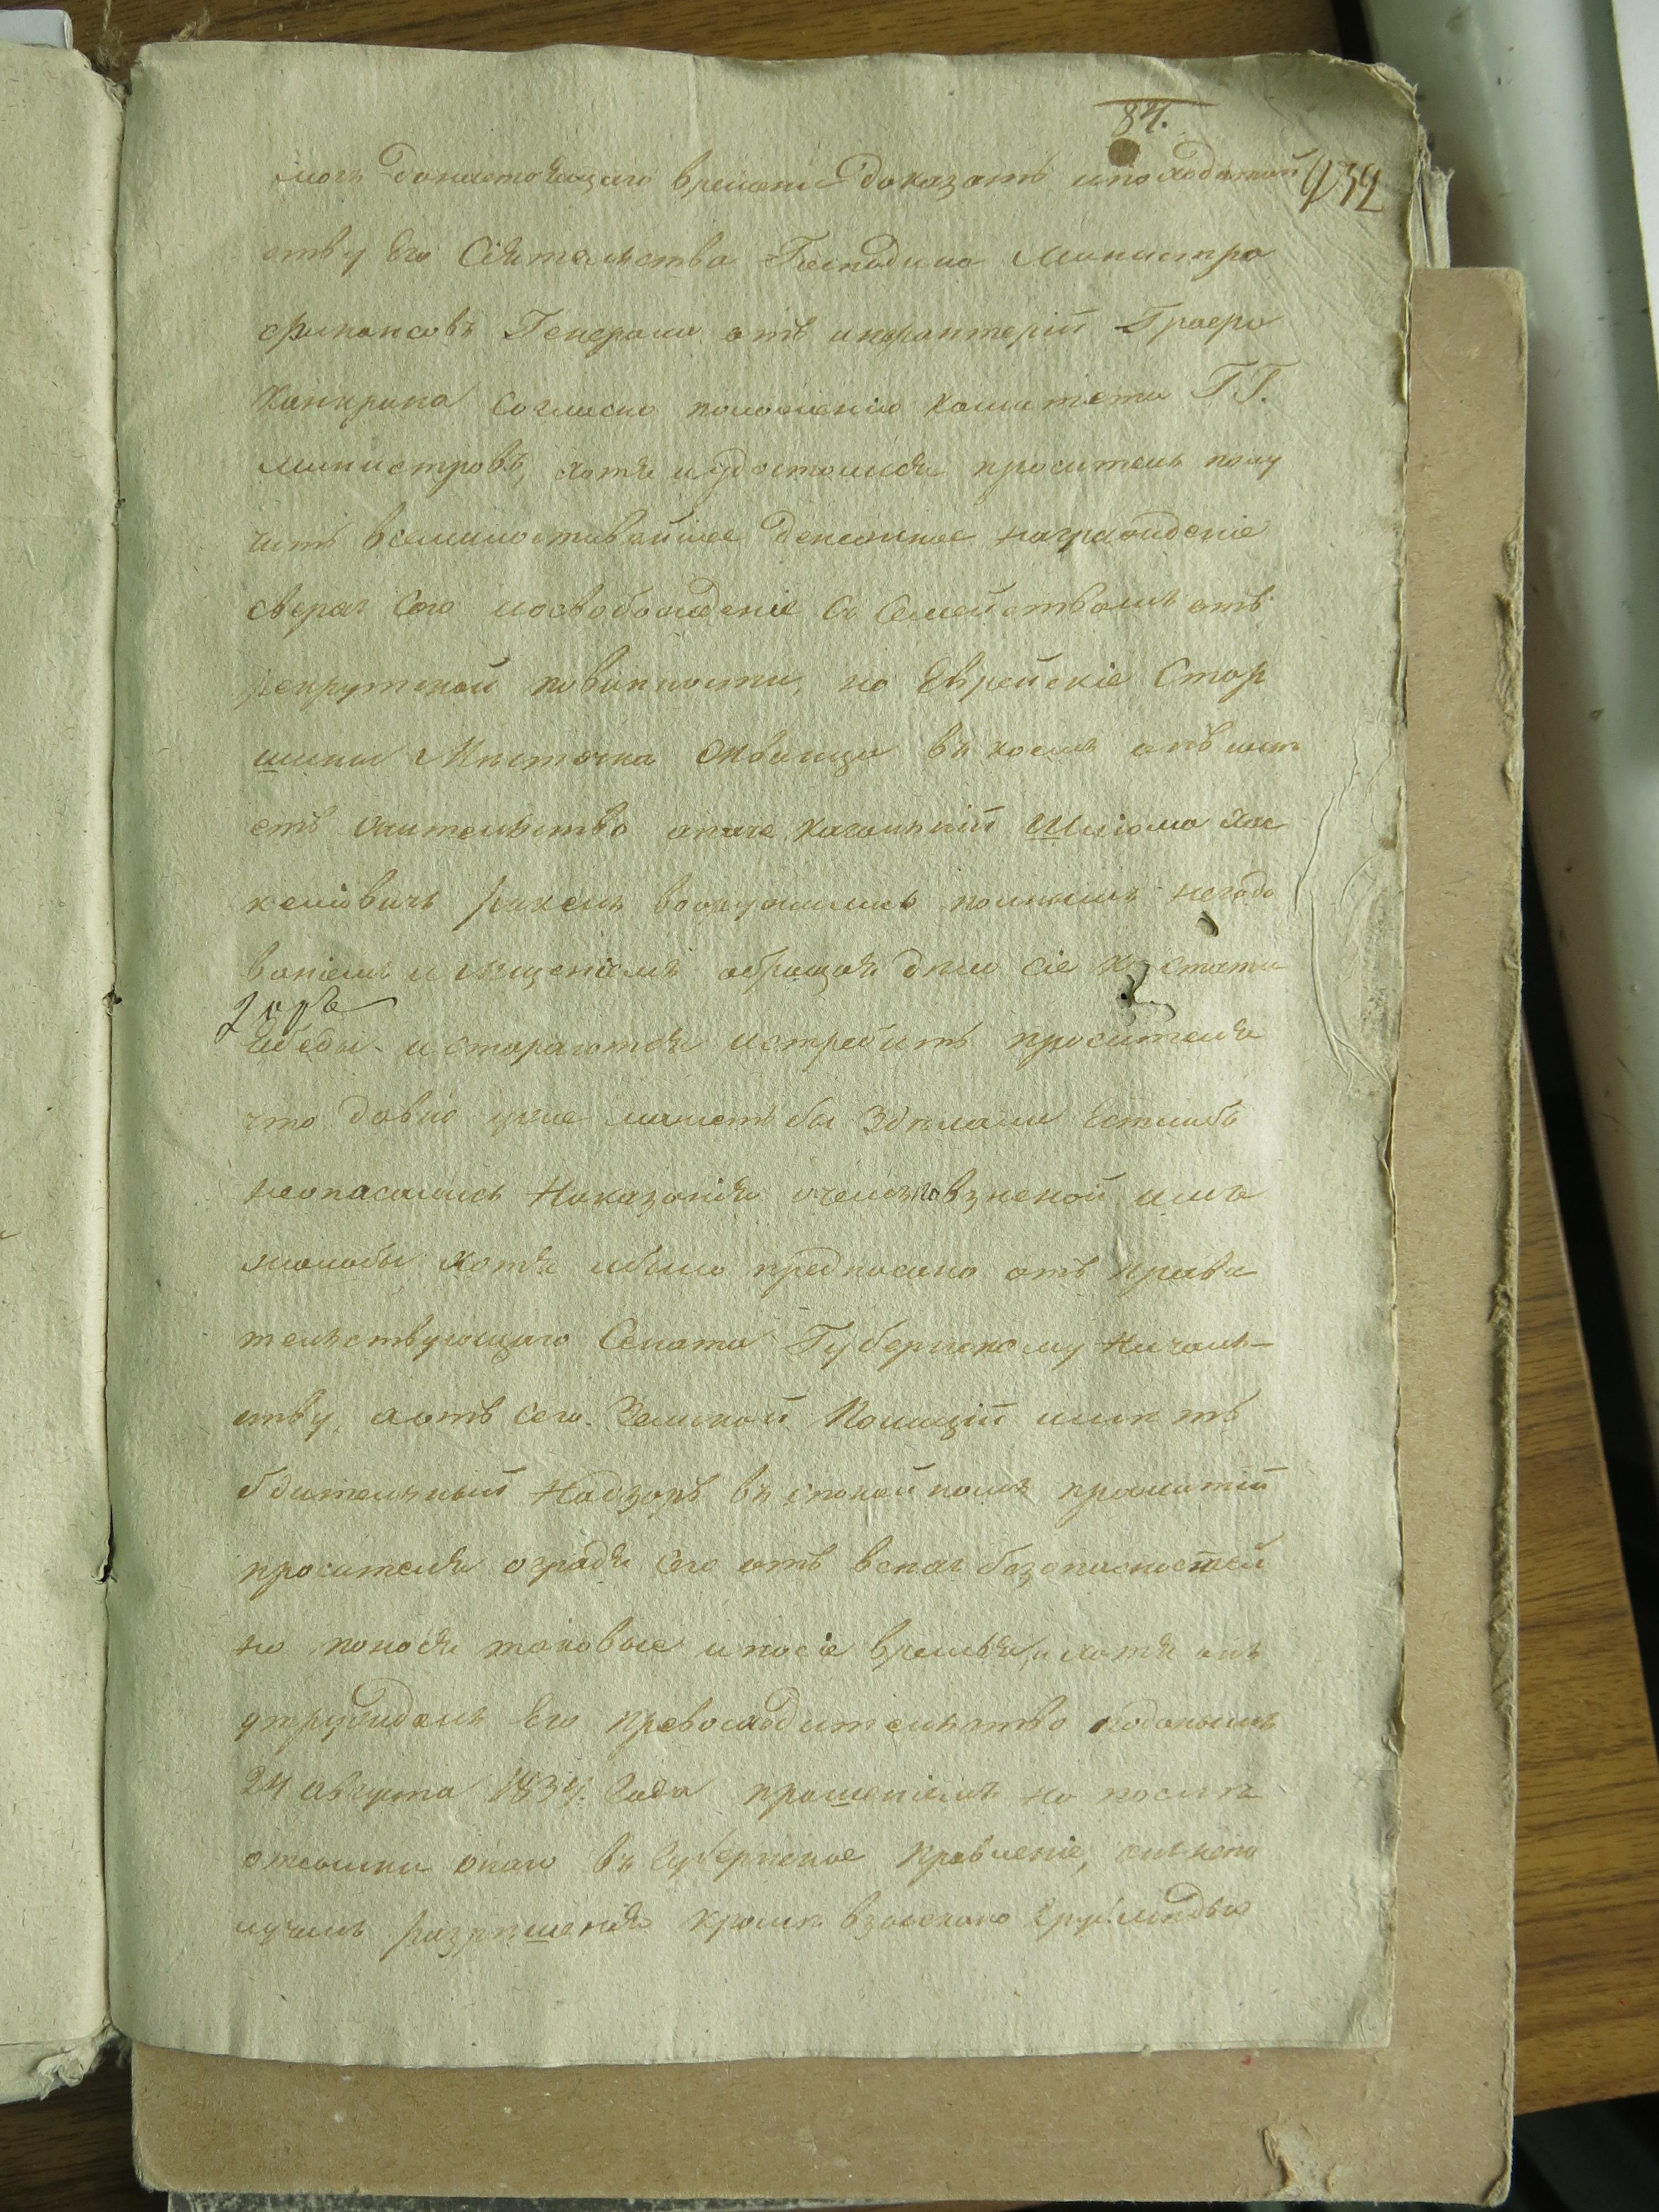 84.
432
могъ донастоящаго времени доказать ипоходатай
ству Его Сіятельства Господина Министра
Финансовъ Генерала отъ инфантеріи Графа
Канкрина согласно положенію комитета ГГ.
министровъ, хотя иудостоился проситель полу
чить всемилостивейшее денежное награжденіе
сверхъ сего иосвобожденіе съ Семействомъ отъ
рекрутской повинности, но Еврейскіе Стар
шины Мѣсточка въ коемъ онъ имѣ
етъ жительство а паче кагальный Шліома Хас
келіовичь вооружились полнымъ негодо
ваніемъ и мщеніемъ обращая дни сіе к
ябеды истараются истребить просителя
что давно уже можетъ бы Здѣлали Естлибъ
неопасались Наказанія взненой имъ
жалобы хотя ибыло предписано отъ прави
тельствующаго Сената Губернскому Началь-
ству, аотъ сего Земской Полиціи имѣть
бдительный Надзоръ въ спокойномъ прожитіи
просителя оградя Его отъ всехъ безопасностей
но таковые ипосіе время, и хотя онъ
утруждалъ Его превосходительство поданымъ
24 августа 1834. Года прошеніемъ но послѣ
отсылки онаго въ Губернское Правленіе,
лучилъ разрѣшенія кроме взысканія